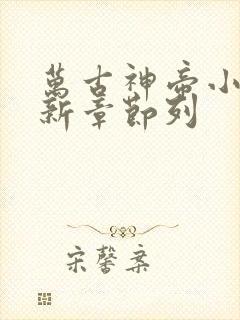 萬古神帝小
新章節列
宋馨案